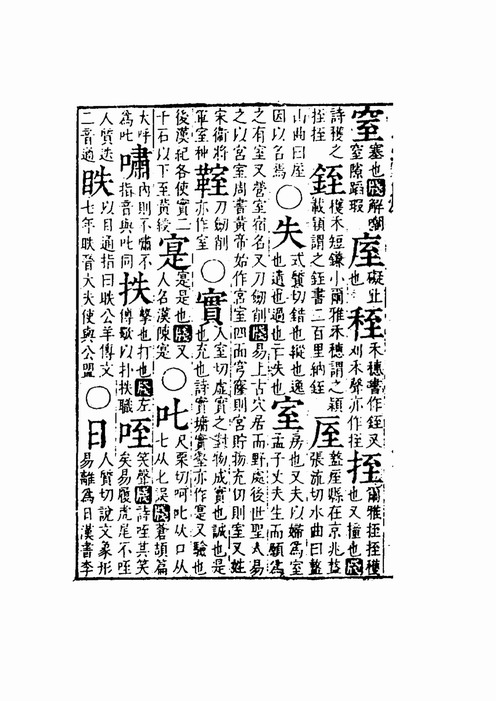 窒塞也 解嘲窒隙蹈瑕 庢礙止也 秷禾穗書作銍又刈禾聲亦作挃 挃爾雅挃挃穫也又撞也
詩穫之挃挃 銍穫禾短鎌小爾雅禾穗謂之穎截穎謂之銍書二百里納銍 厔盩厔縣在京兆盩張流切水曲曰盩
山曲曰厔因以名焉 ○失式質切錯也縱也逸也遺也過也 室房也又夫以婦為室孟子丈夫生而願為
之有室又營室宿名又刀劒削 易上古穴居而野處後世聖人易之以宮室周書黃帝始作宮室四面穹窿則宮貯物充仞則室又姓
宋衛將軍室种 鞏刀劒削亦作室 ○實入室切虛實之對物成實也誠也是也充也詩實墉實壑亦作寔又驗也
後漢紀各使實二千石以下至黃綬 寔寔是也 又人名漢陳寔 ○叱尺栗切呵叱从口从七 蒼頡篇
大呼為叱 嘯內則不嘯不指音與叱同 抶擊也打也 左傳歜以扑抶職 咥笑聲 詩咥其笑矣易履虎尾不咥
人質迭二音通 眣以目通指曰眣公羊傳文七年眣晉大夫使與公盟 ○日人質切說文象形易離為日漢書李